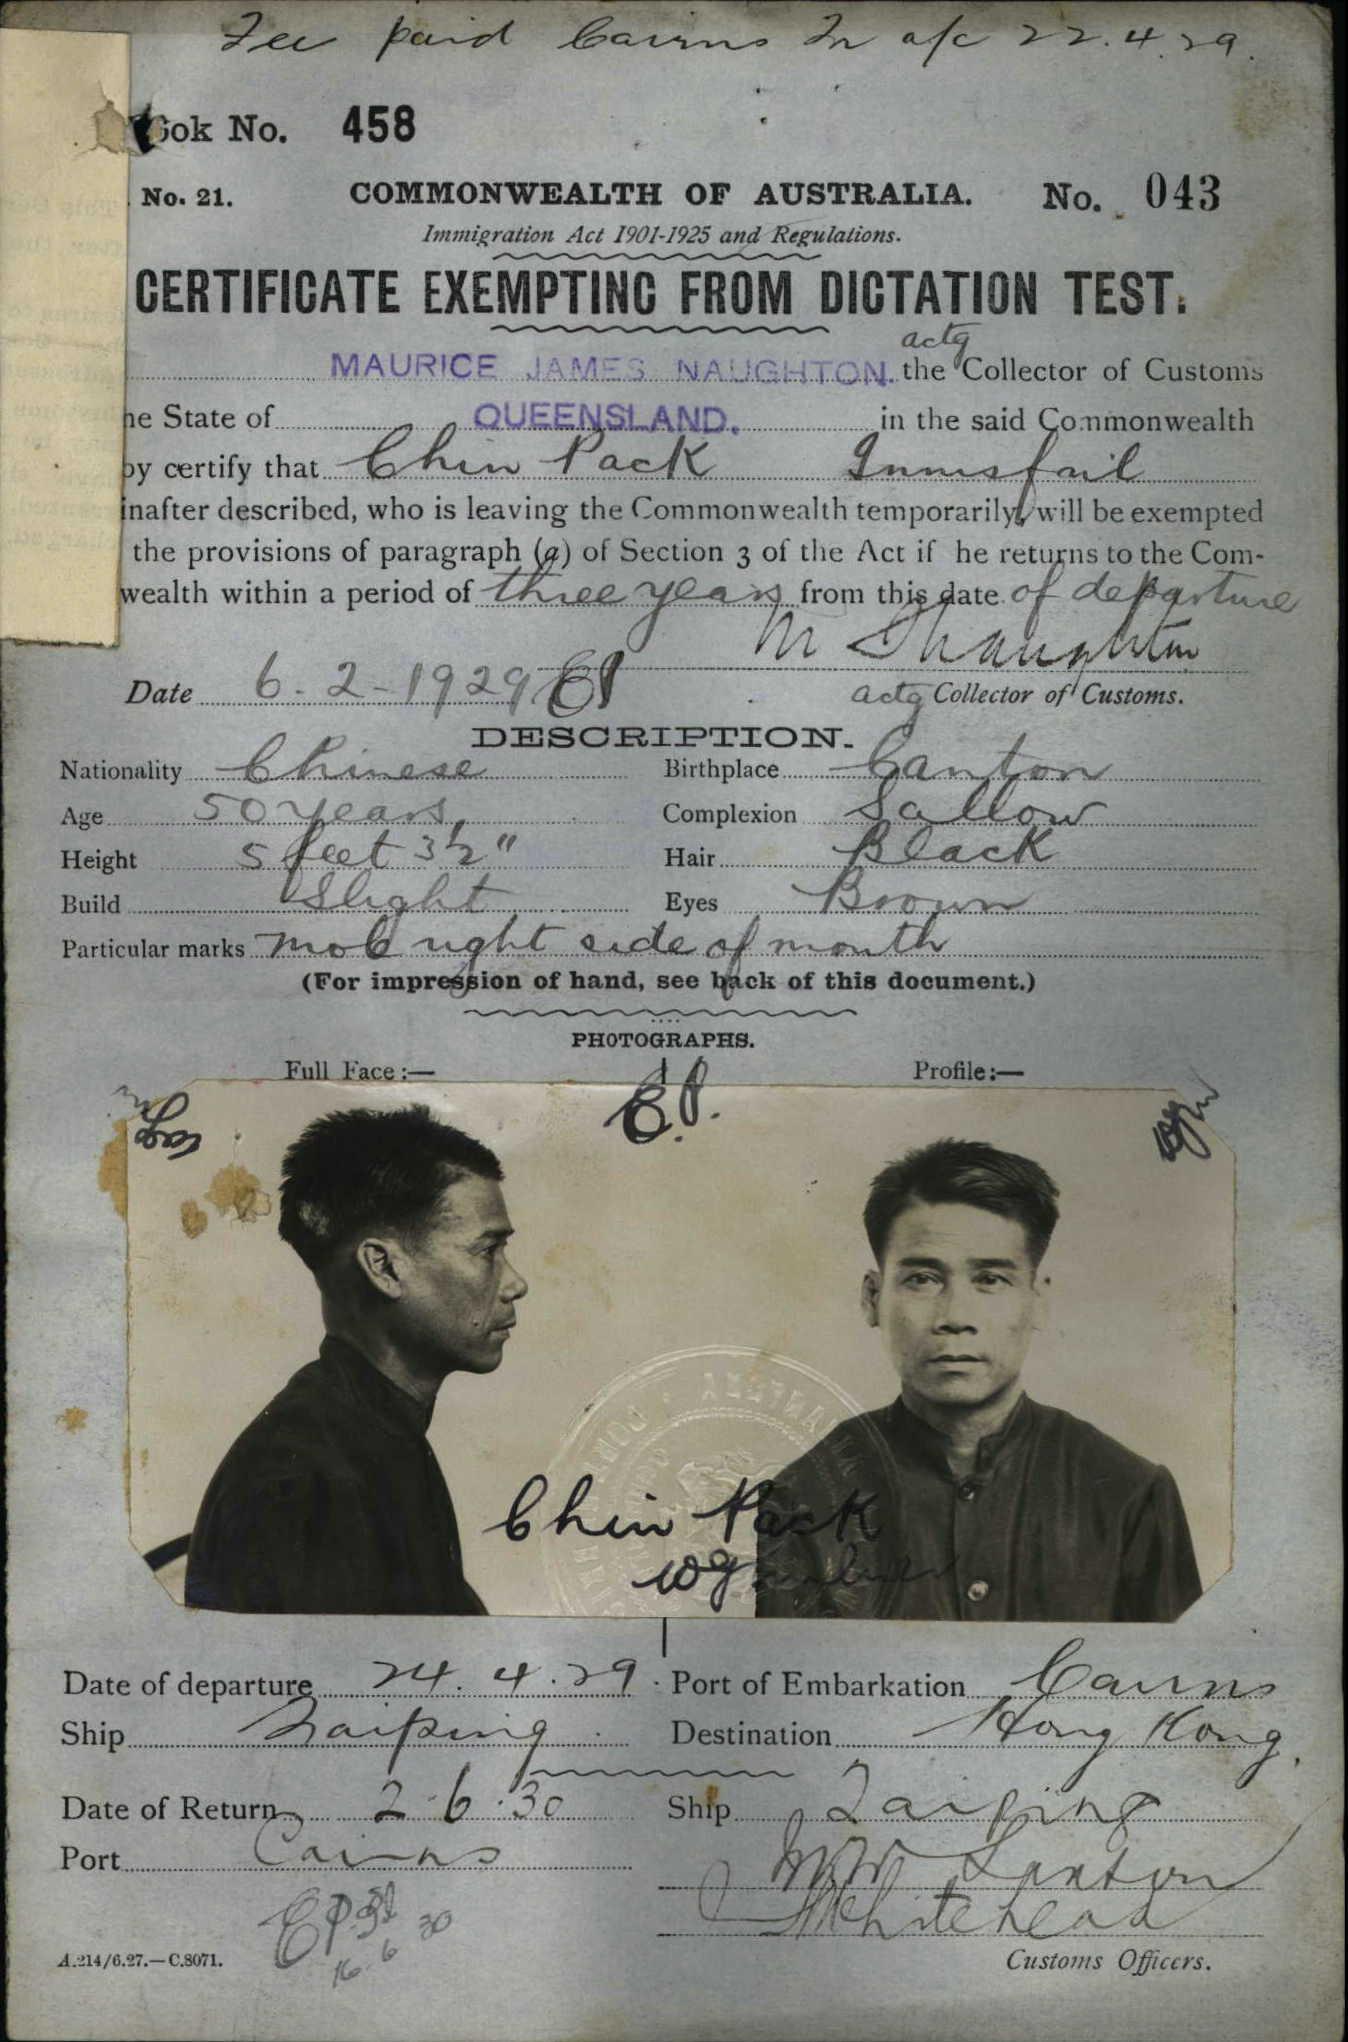 Fee paid Cairns In a/c 22.4.29.
ook No. 458
No. 21. COMMONWEALTH OF AUSTRALIA. No. 043
Immigration Act 1901-1925 and Regulations.
CERTIFICATE EXEMPTING FROM DICTATION TEST.
actg
MAURICE JAMES NAUGHTON. the Collector of Customs
he State of QUEENSLAND. in the said Commonwealth
by certify that Chin Pack Innisfail
inafter described, who is leaving the Commonwealth temporarily, will be exempted
the provisions of paragraph (a) of Section 3 of the Act if he returns to the Com-
wealth within a period of three years from this date of departure
Date 6-2-1929
actg Collector of Customs.
DESCRIPTION.
Nationality Chinese Birthplace Canton
Age 50 years Complexion Sallow
Height 5 feet 3½" Hair Black
Build Slight Eyes Brown
Particular marks mole right side of mouth
(For impression of hand, see back of this document.)
PHOTOGRAPHS.
Full Face:— Profile:—
E.P.
Chin Pack
Date of departure 24.4.29. Port of Embarkation Cairns
Ship Taiping Destination Hong Kong.
Date of Return 2.6.30 Ship Taiping
Port Cairns
Whitehead
16.6.30
A.214/6.27.—C.8071. Customs Officers.